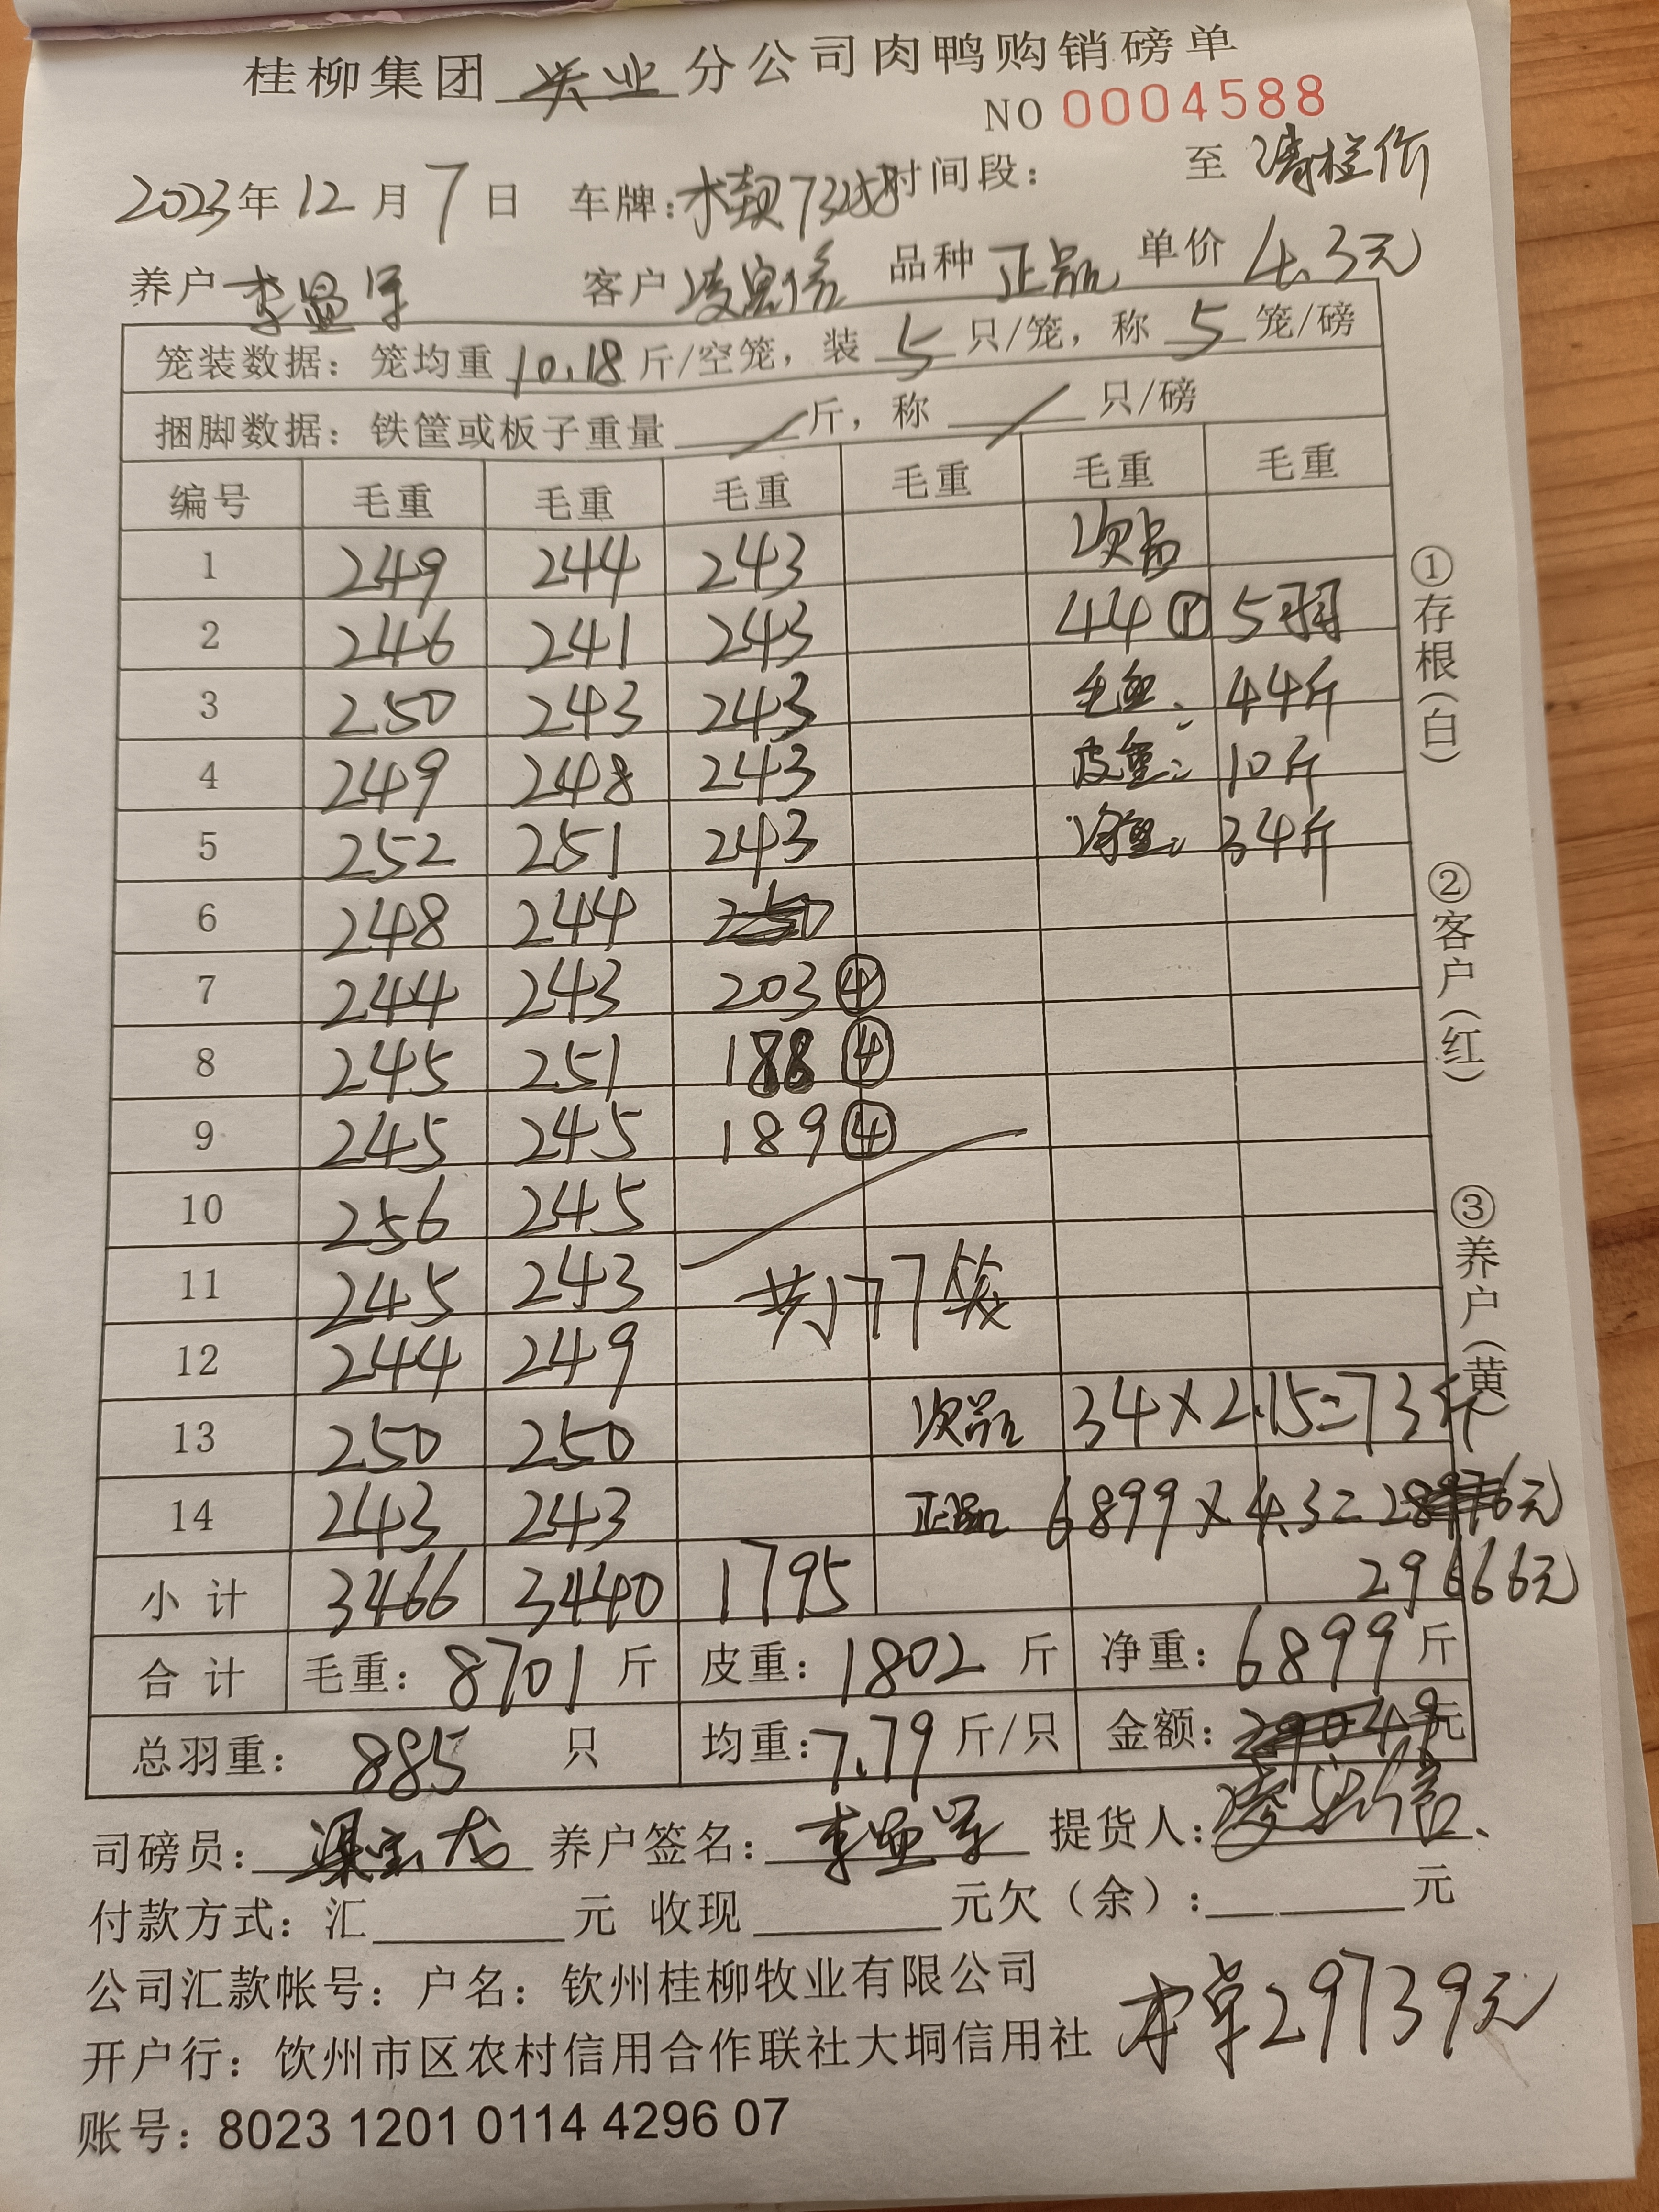 桂柳集团 业 分公司肉鸭购销磅单
NO 0004588
2023年12月7日 车牌: 时间段: 至 清栏价
养户 李显军 客户 品种 正品 单价 4.3元
笼装数据: 笼均重 10.18 斤/空笼, 装 5 只/笼, 称 5 笼/磅
捆脚数据: 铁筐或板子重量 / 斤, 称 / 只/磅
编号 毛重 毛重 毛重 毛重 毛重 毛重
1 249 244 243 次品
2 246 241 243 44① 5羽
3 250 243 243 毛重: 44斤
4 249 248 243 皮重: 10斤
5 252 251 243 净重: 34斤
6 248 244
7 244 243 203④
8 245 251 188④
9 245 245 189④
10 256 245
11 245 243 共177笼
12 244 249
13 250 250 次品 34×2.15=73斤
14 243 243 正品 6899×4.3=元
小计 3466 3440 1795 29666元
合计 毛重: 8701 斤 皮重: 1802 斤 净重: 6899 斤
总羽重: 885 只 均重: 7.79 斤/只 金额: 29049元
司磅员: 养户签名: 李显军 提货人:
付款方式: 汇 元 收现 元欠(余): 元
公司汇款帐号: 户名: 钦州桂柳牧业有限公司
开户行: 钦州市区农村信用合作联社大垌信用社
本单29739元
账号: 8023 1201 0114 4296 07
①存根(白)
②客户(红)
③养户(黄)